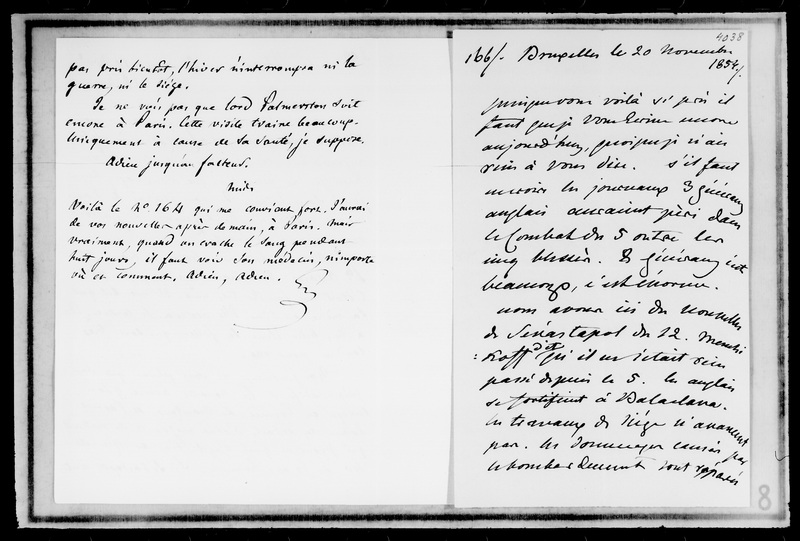 pas pris bientôt, l'hiver n'interrompra ni la
guerre, ni le siège.
Je ne vois pas que lord Palmerston soit
encore à Paris. Cette visite traine beaucoup.
Uniquement à cause de sa santé, je suppose.
Adieu jusqu'au facteur.
Midi
Voilà le nº 164 qui me convient fort. J'aurai
de vos nouvelles après demain, à Paris. Mais
vraiment, quand on crache le sang pendant
huit jours, il faut voir son médecin, n'importe
où et comment. Adieu, adieu.
4038
166/. Bruxelles le 20 Novembre
1854/.
puisque vous voilà si près il
faut que je vous écrive encore
aujourd'hui, quoique je n'aie
rien à vous dire. s'il faut
en croire les journaux 3 généraux
anglais auraient péri dans
le Combat du 5 outre les
cinq blessés. 8 généraux c'est
beaucoup, c'est énorme.
nous avons ici des nouvelles
de Sévastopol du 12. Menchi
:koff dit qu'il ne s'était rien
passé depuis le 5. les anglais
se fortifient à Balaclava.
les travaux de siège n'avancent
pas. les dommages causés par
le bombardement sont réparés
8